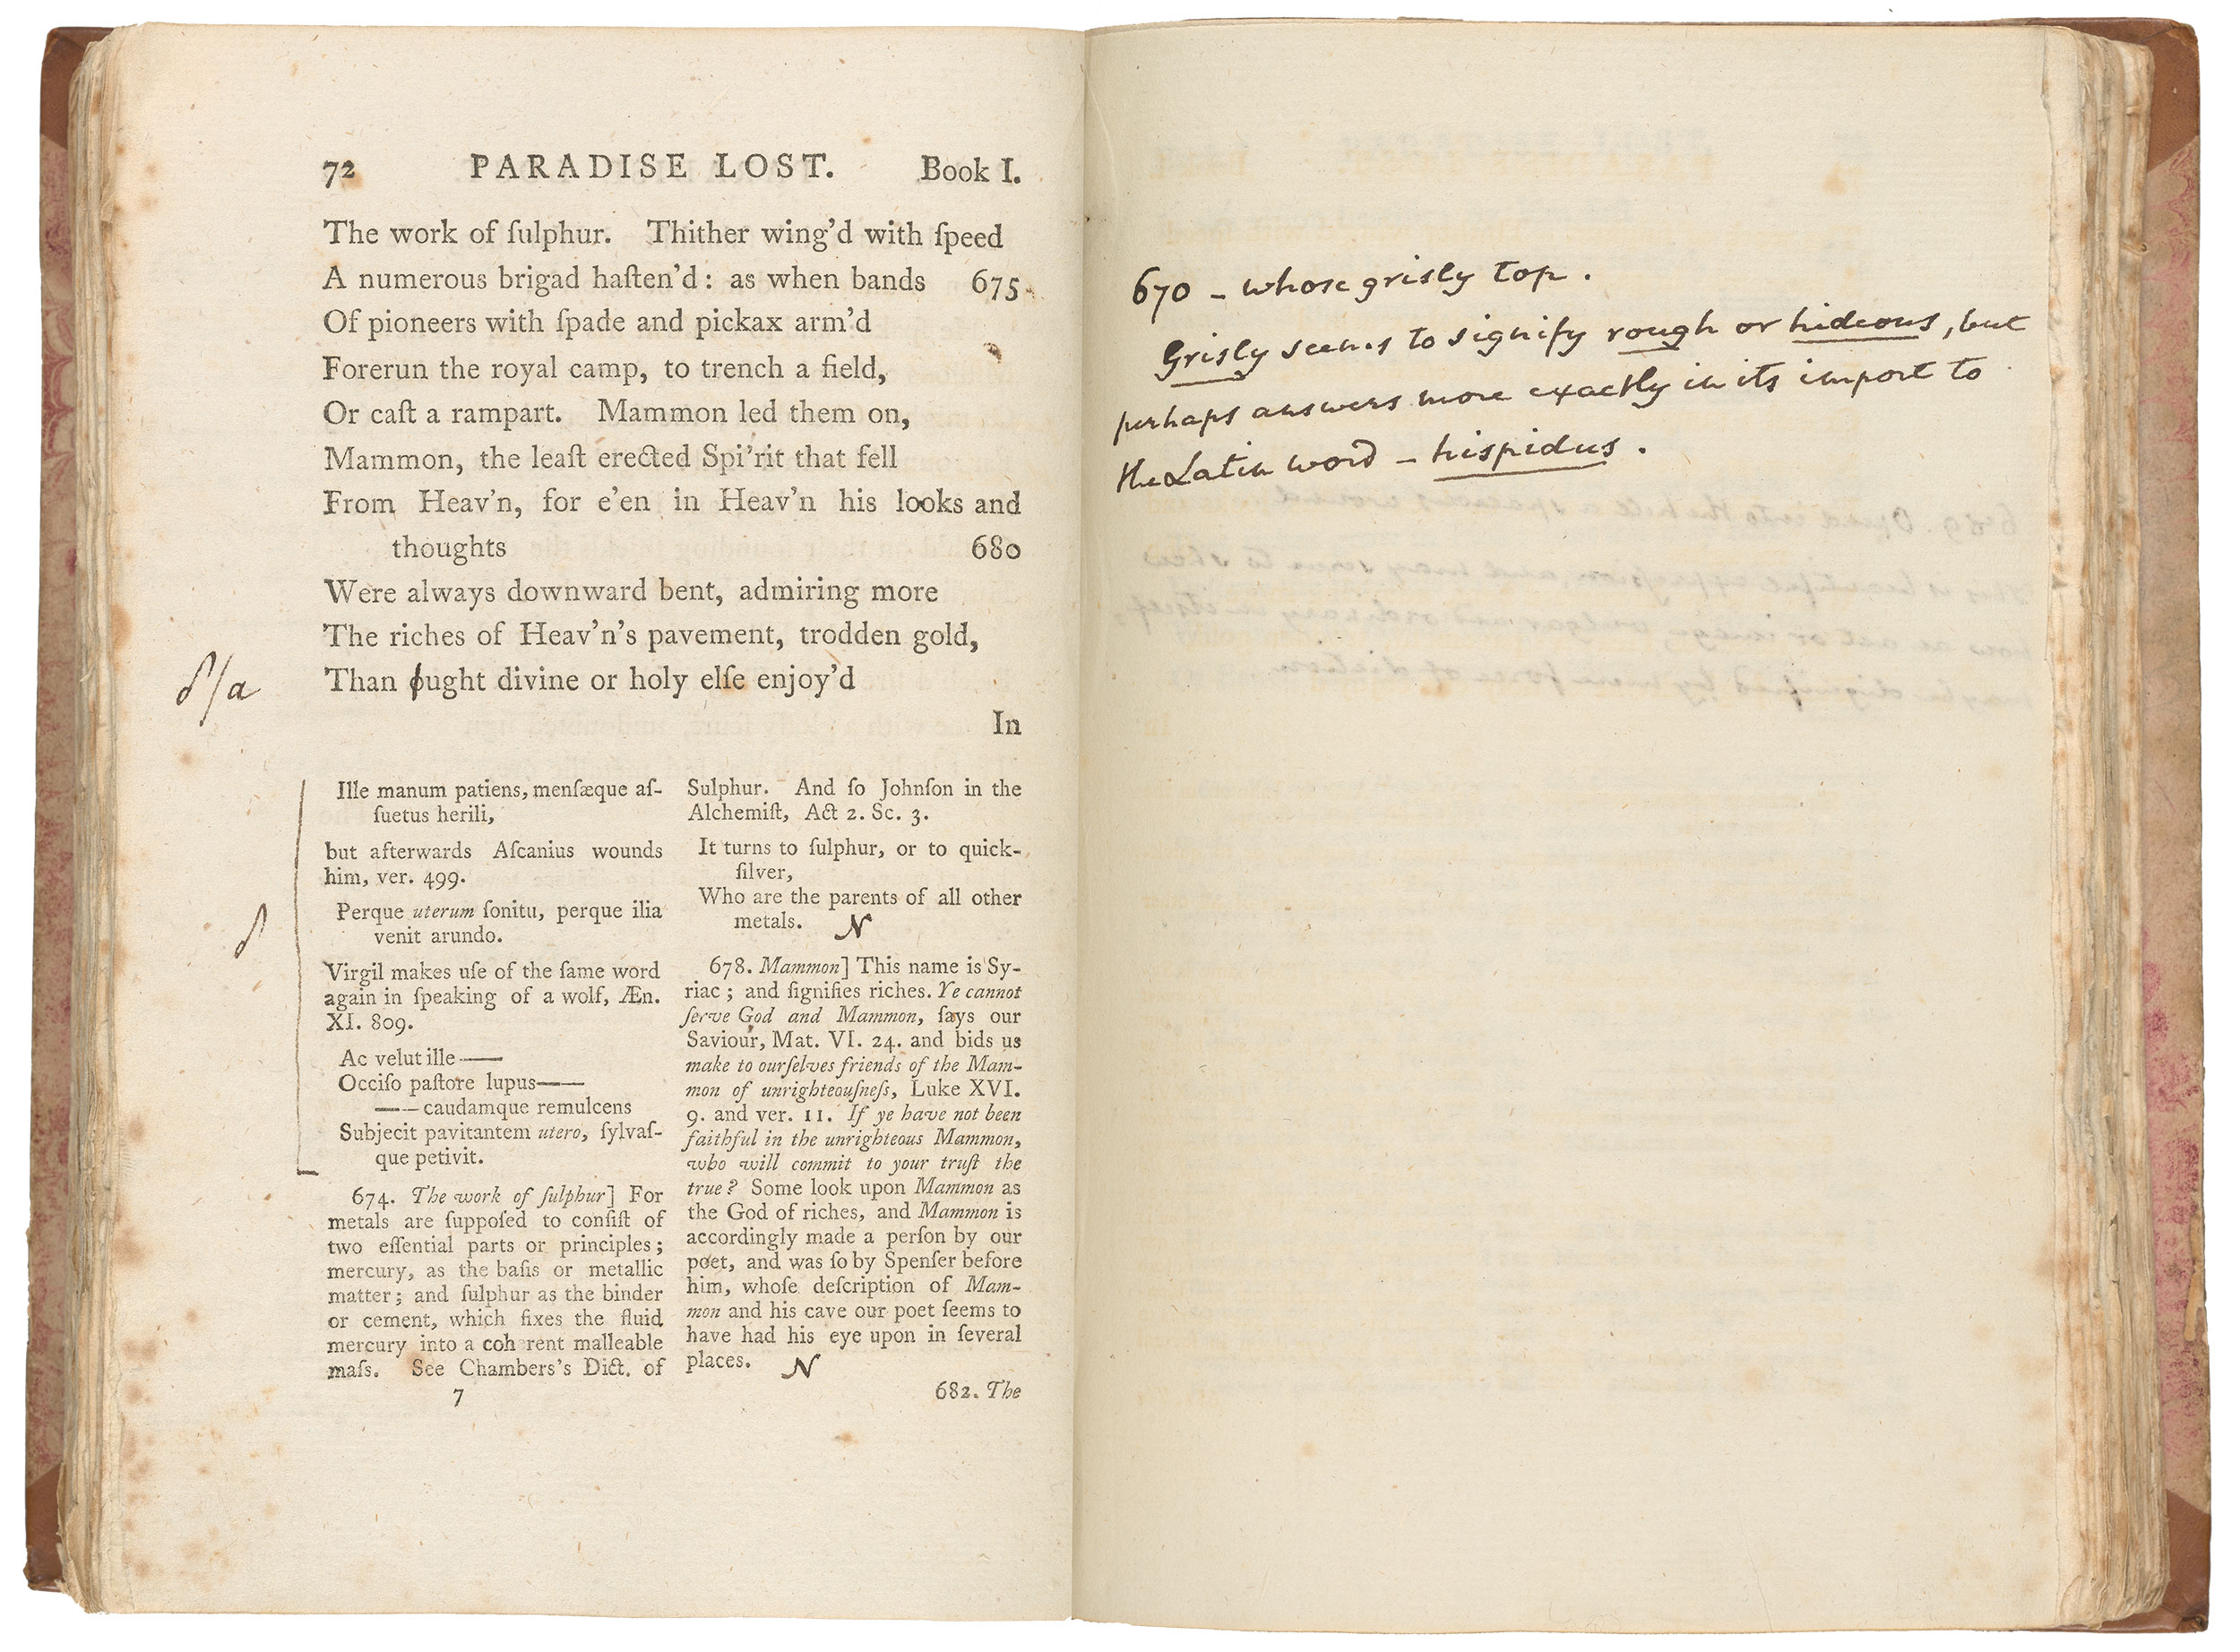 72 PARADISE LOST. Book I.
The work of ſulphur. Thither wing'd with ſpeed
A numerous brigad haſten'd: as when bands 675
Of pioneers with ſpade and pickax arm'd
Forerun the royal camp, to trench a field,
Or caſt a rampart. Mammon led them on,
Mammon, the leaſt erected Spi'rit that fell
From Heav'n, for e'en in Heav'n his looks and
thoughts 680
Were always downward bent, admiring more
The riches of Heav'n's pavement, trodden gold,
a
Than ought divine or holy elſe enjoy'd
In
Ille manum patiens, menſæque aſ-
ſuetus herili,
but afterwards Aſcanius wounds
him, ver. 499.
Perque uterum ſonitu, perque ilia
venit arundo.
Virgil makes uſe of the ſame word
again in ſpeaking of a wolf, Æn.
XI. 809.
Ac velut ille——
Occiſo paſtore lupus——
——caudamque remulcens
Subjecit pavitantem utero, ſylvaſ-
que petivit.
674. The work of ſulphur] For
metals are ſuppoſed to conſiſt of
two eſſential parts or principles;
mercury, as the baſis or metallic
matter; and ſulphur as the binder
or cement, which fixes the fluid
mercury into a coh rent malleable
maſs. See Chambers's Dict. of
7
Sulphur. And ſo Johnſon in the
Alchemiſt, Act 2. Sc. 3.
It turns to ſulphur, or to quick-
ſilver,
Who are the parents of all other
metals. N
678. Mammon] This name is Sy-
riac; and ſignifies riches. Ye cannot
ſerve God and Mammon, ſays our
Saviour, Mat. VI. 24. and bids us
make to ourſelves friends of the Mam-
mon of unrighteouſneſs, Luke XVI.
9. and ver. 11. If ye have not been
faithful in the unrighteous Mammon,
who will commit to your truſt the
true? Some look upon Mammon as
the God of riches, and Mammon is
accordingly made a perſon by our
poet, and was ſo by Spenſer before
him, whoſe deſcription of Mam-
mon and his cave our poet ſeems to
have had his eye upon in ſeveral
places. N
682. The
670 - whose grisly top.
Grisly seems to signify rough or hideous, but
perhaps answers more exactly in its import to
the Latin word - hispidus.